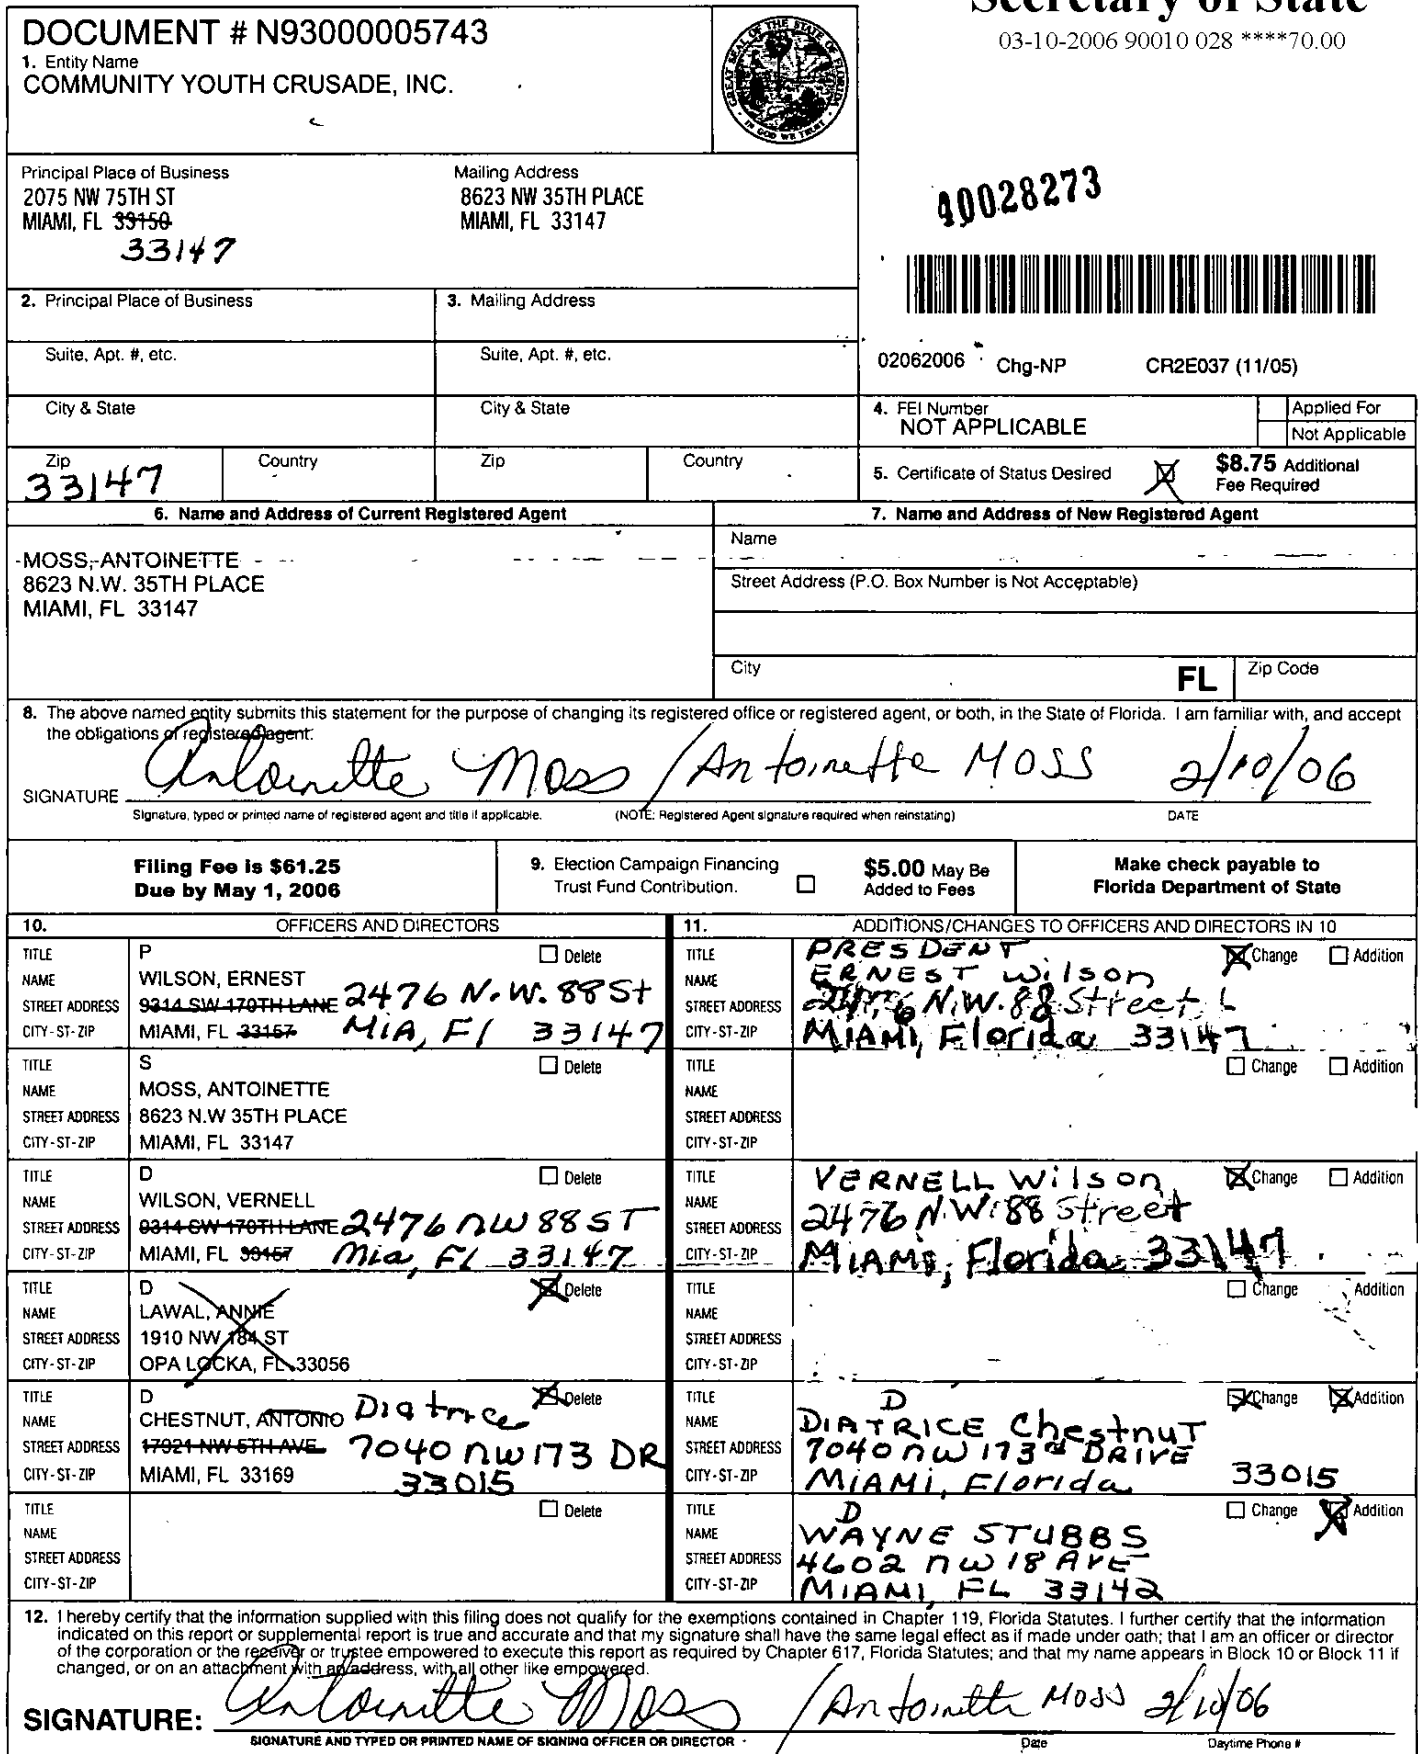 Secretary of State
03-10-2006 90010 028 ****70.00
DOCUMENT # N93000005743
1. Entity Name
COMMUNITY YOUTH CRUSADE, INC.
GREAT SEAL OF THE STATE OF FLORIDA
IN GOD WE TRUST
Principal Place of Business
2075 NW 75TH ST
MIAMI, FL 33150
33147
Mailing Address
8623 NW 35TH PLACE
MIAMI, FL 33147
40028273
2. Principal Place of Business
3. Mailing Address
Suite, Apt. #, etc.
Suite, Apt. #, etc.
02062006 Chg-NP CR2E037 (11/05)
City & State
City & State
4. FEI Number
NOT APPLICABLE
Applied For
Not Applicable
Zip
33147
Country
Zip
Country
5. Certificate of Status Desired
$8.75 Additional
Fee Required
6. Name and Address of Current Registered Agent
7. Name and Address of New Registered Agent
MOSS, ANTOINETTE
8623 N.W. 35TH PLACE
MIAMI, FL 33147
Name
Street Address (P.O. Box Number is Not Acceptable)
City
FL
Zip Code
8. The above named entity submits this statement for the purpose of changing its registered office or registered agent, or both, in the State of Florida. I am familiar with, and accept
the obligations of registered agent.
SIGNATURE Antoinette Moss / Antoinette Moss 2/10/06
Signature, typed or printed name of registered agent and title if applicable. (NOTE: Registered Agent signature required when reinstating) DATE
Filing Fee is $61.25
Due by May 1, 2006
9. Election Campaign Financing
Trust Fund Contribution.
$5.00 May Be
Added to Fees
Make check payable to
Florida Department of State
10. OFFICERS AND DIRECTORS
11. ADDITIONS/CHANGES TO OFFICERS AND DIRECTORS IN 10
TITLE P Delete
NAME WILSON, ERNEST
STREET ADDRESS 9314 SW 170TH LANE 2476 N.W. 88 St
CITY-ST-ZIP MIAMI, FL 33157 MIA, Fl 33147
TITLE PRESDENT Change Addition
NAME ERNEST Wilson
STREET ADDRESS 2476 N.W. 88 Street
CITY-ST-ZIP MIAMI, Florida 33147
TITLE S Delete
NAME MOSS, ANTOINETTE
STREET ADDRESS 8623 N.W 35TH PLACE
CITY-ST-ZIP MIAMI, FL 33147
TITLE Change Addition
NAME
STREET ADDRESS
CITY-ST-ZIP
TITLE D Delete
NAME WILSON, VERNELL
STREET ADDRESS 9314 SW 170TH LANE 2476 NW 88 ST
CITY-ST-ZIP MIAMI, FL 33157 Mia, Fl 33147
TITLE VERNELL Wilson Change Addition
NAME 2476 N.W. 88 Street
STREET ADDRESS
CITY-ST-ZIP MIAMI, Florida 33147
TITLE D Delete
NAME LAWAL, ANNIE
STREET ADDRESS 1910 NW 184 ST
CITY-ST-ZIP OPA LOCKA, FL 33056
TITLE Change Addition
NAME
STREET ADDRESS
CITY-ST-ZIP
TITLE D Delete
NAME CHESTNUT, ANTONIO Diatrice
STREET ADDRESS 17921 NW 5TH AVE 7040 NW 173 DR
CITY-ST-ZIP MIAMI, FL 33169 33015
TITLE D Change Addition
NAME DIATRICE Chestnut
STREET ADDRESS 7040 NW 173rd DRIVE
CITY-ST-ZIP MIAMI, Florida 33015
TITLE Delete
NAME
STREET ADDRESS
CITY-ST-ZIP
TITLE D Change Addition
NAME WAYNE STUBBS
STREET ADDRESS 4602 NW 18 AVE
CITY-ST-ZIP MIAMI, FL 33142
12. I hereby certify that the information supplied with this filing does not qualify for the exemptions contained in Chapter 119, Florida Statutes. I further certify that the information
indicated on this report or supplemental report is true and accurate and that my signature shall have the same legal effect as if made under oath; that I am an officer or director
of the corporation or the receiver or trustee empowered to execute this report as required by Chapter 617, Florida Statutes; and that my name appears in Block 10 or Block 11 if
changed, or on an attachment with an address, with all other like empowered.
SIGNATURE: Antoinette Moss / Antoinette Moss 2/10/06
SIGNATURE AND TYPED OR PRINTED NAME OF SIGNING OFFICER OR DIRECTOR Date Daytime Phone #